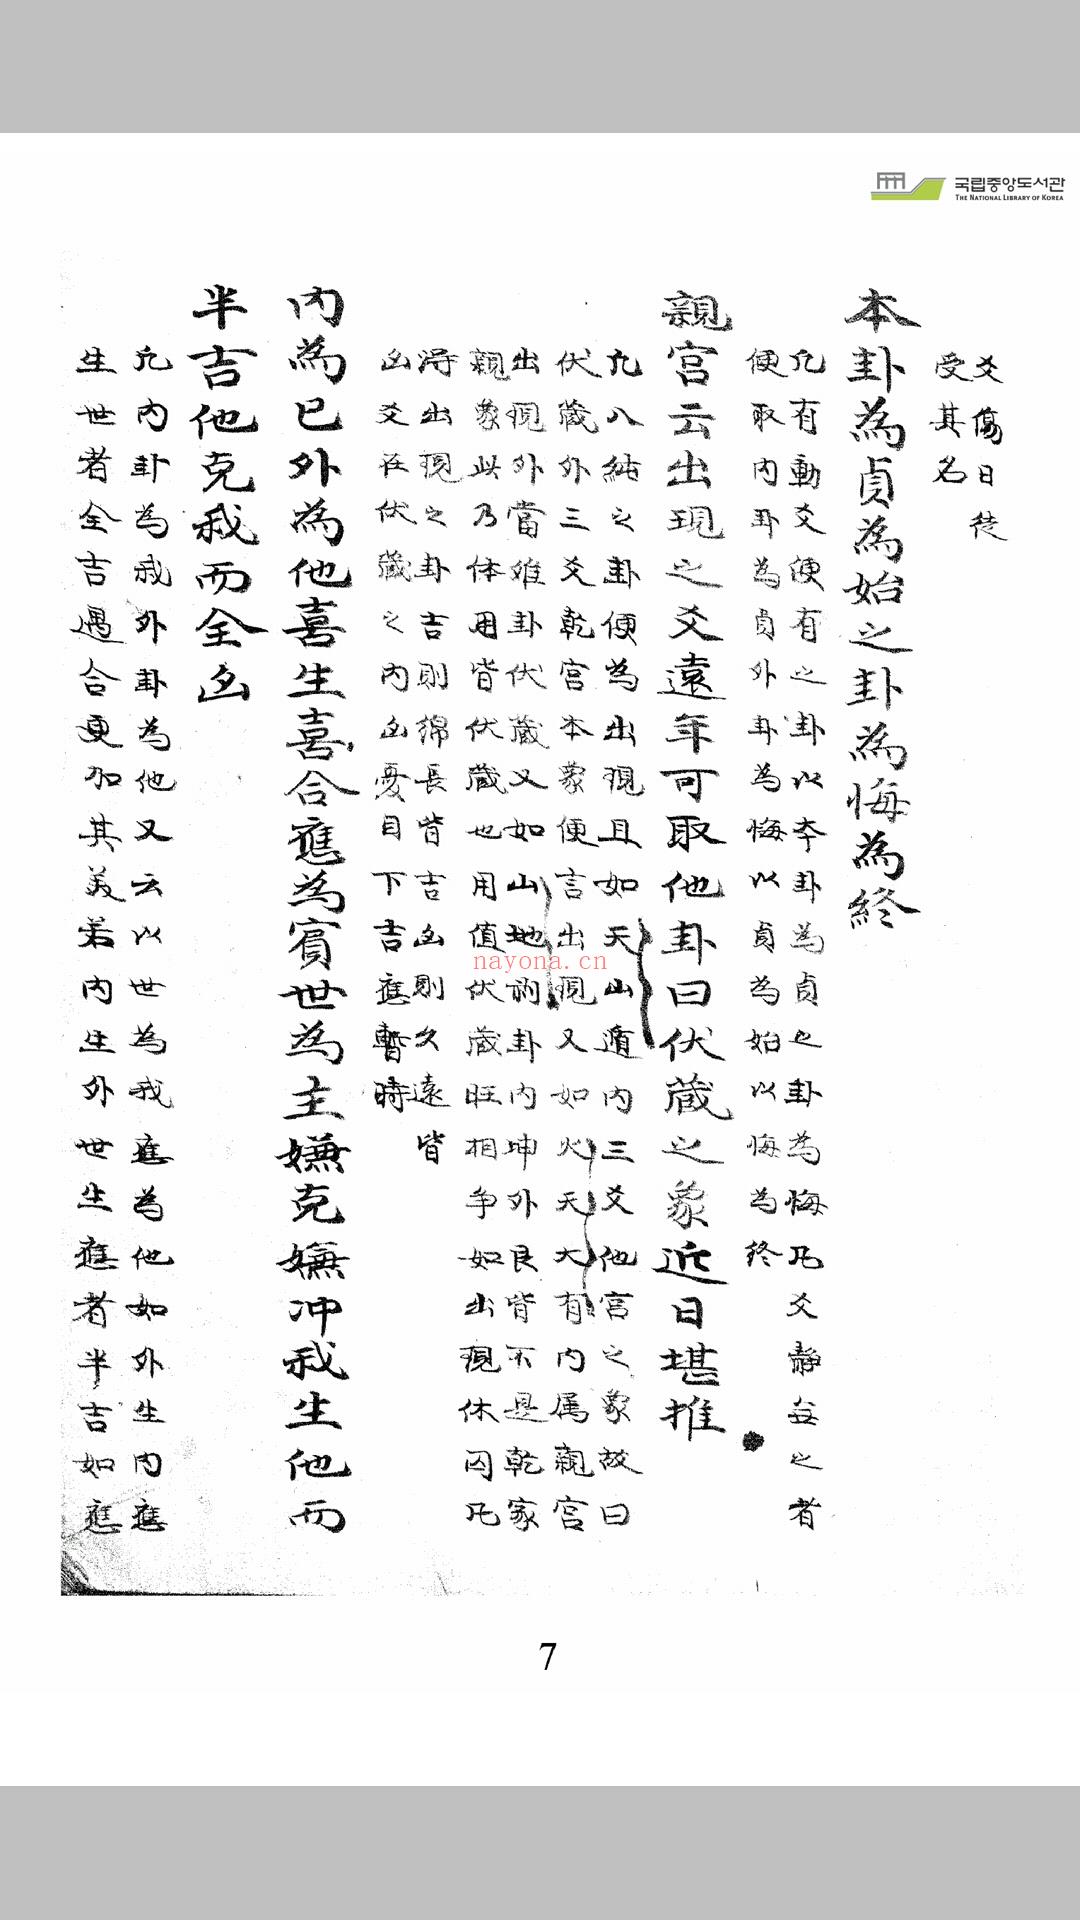 국립중앙도서관
THE NATIONAL LIBRARY OF KOREA
爻傷日徒
受其名
本卦為貞為始之卦為悔為終
凡有動爻便有之卦以本卦為貞之卦為悔凡爻靜無之者
便取內卦為貞外卦為悔以貞為始以悔為終
親宮云出現之爻遠年可取他卦曰伏藏之象近日堪推
凡八純之卦便為出現且如天山遁內三爻他宮之象故曰
伏藏外三爻乾宮本象便言出現又如火天大有內属親宮
出現外當雄卦伏藏又如山地剥卦內坤外艮皆不是乾家
親象此乃体用皆伏藏也用值伏藏旺相争如出現休囚凡
淂出現之卦吉則綿長皆吉凶則久遠皆
凶爻在伏藏之內凶憂目下吉應暫時
內為已外為他喜生喜合應為賓世為主嫌克嫌冲我生他而
半吉他克我而全凶
凡內卦為我外卦為他又云以世為我應為他如外生內應
生世者全吉遇合更加其美若內生外世生應者半吉如應
nayona.cn
7